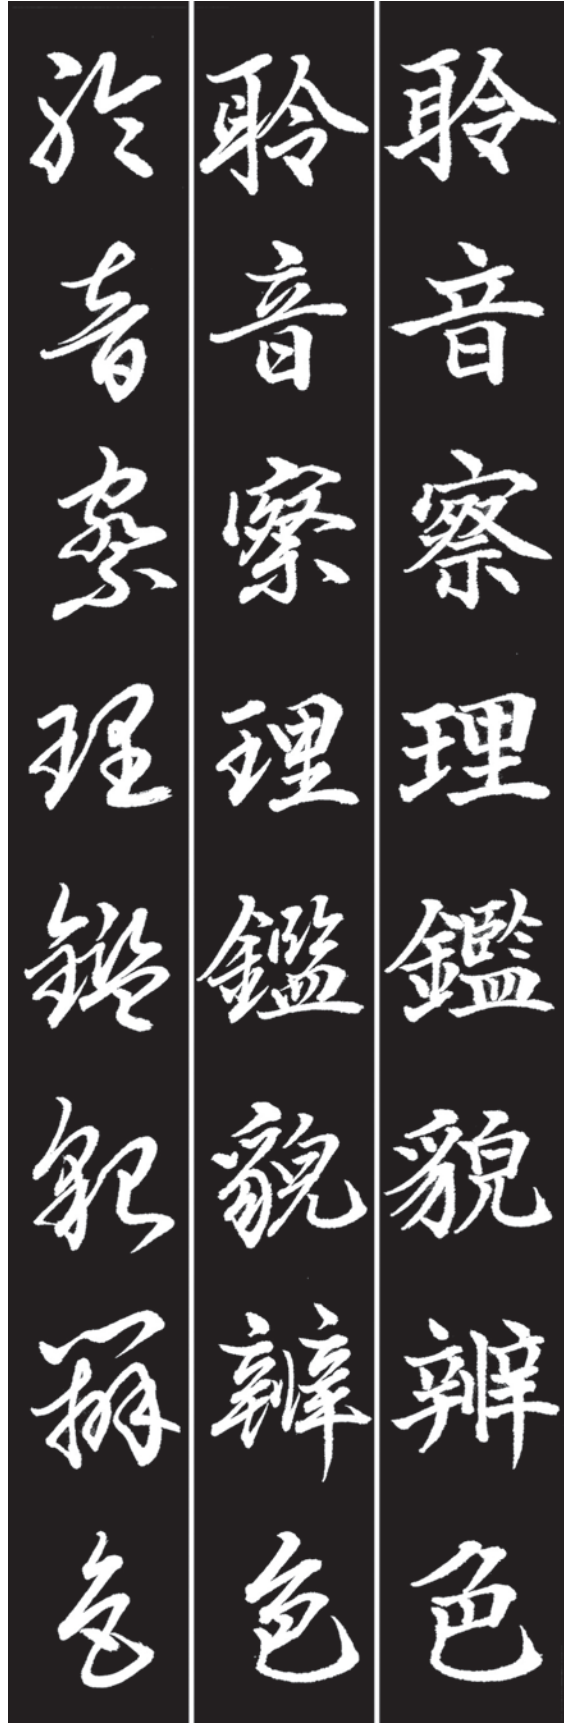 聆音察理鑑貌辨色
聆音察理鑑貌辨色
聆音察理鑑貌辨色